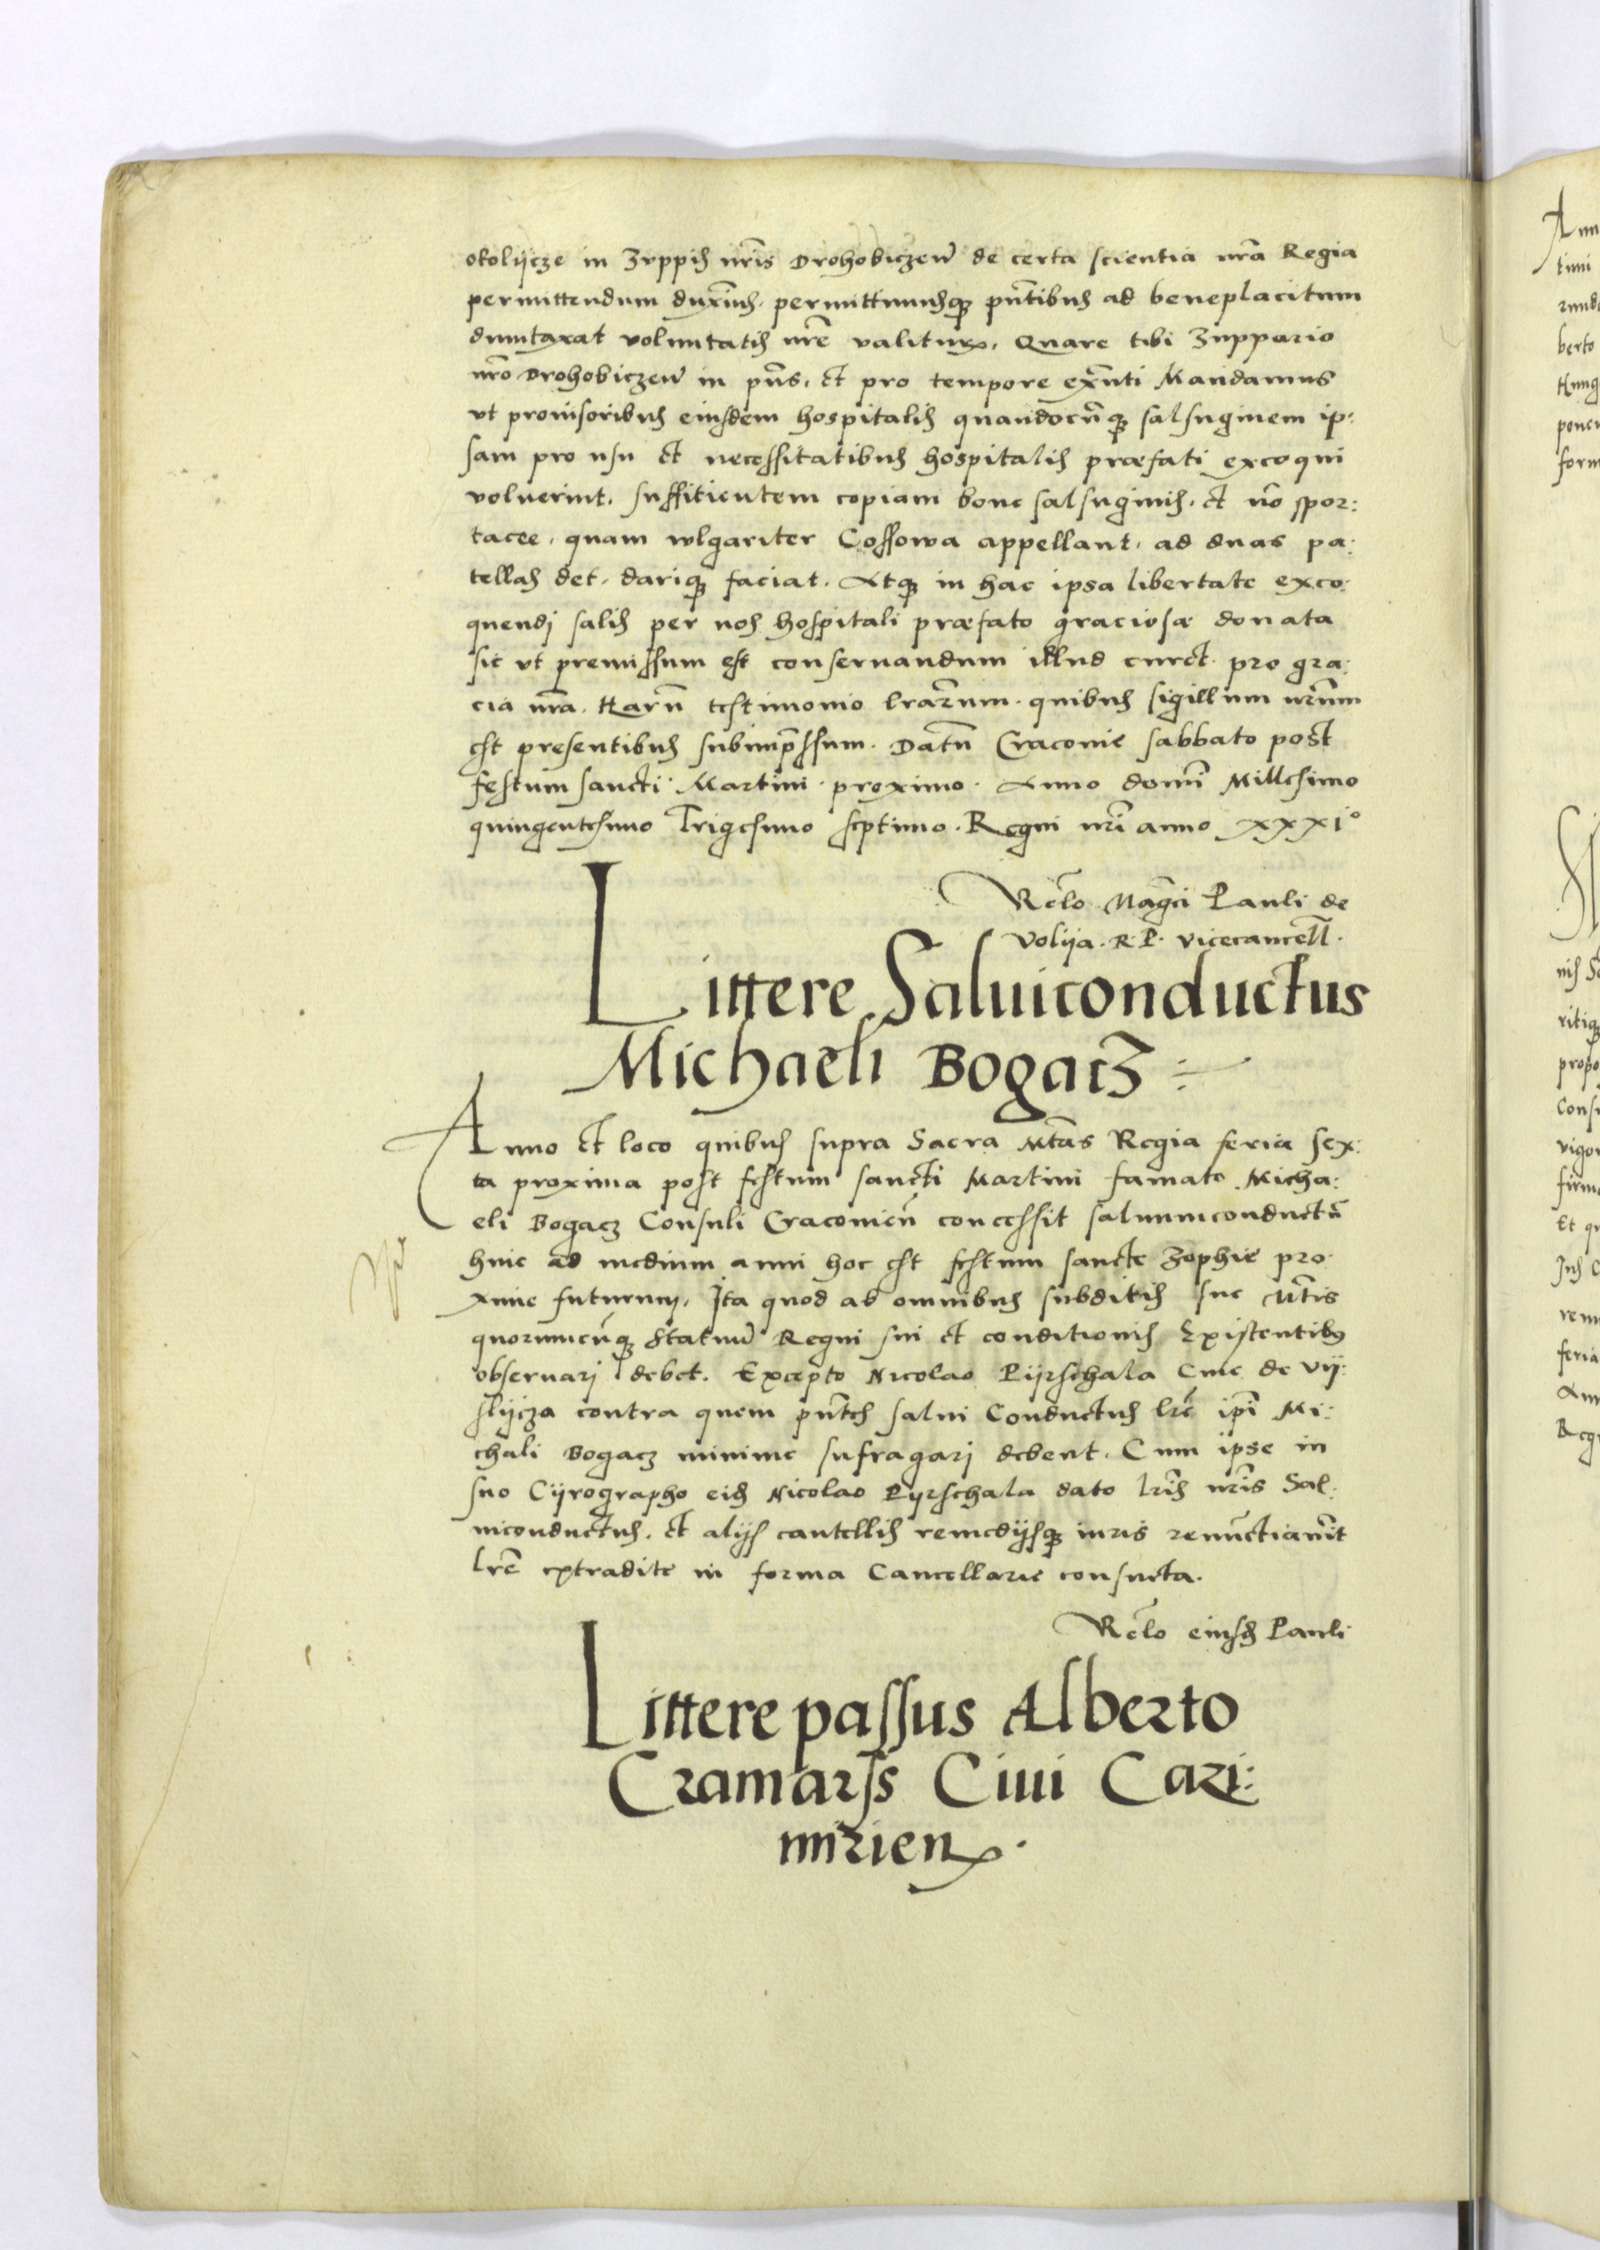 okolÿcze in Zuppis nr̃is Drohobiczeñ de certa scientia nr̃a Regia
permittendum duxim̃us. permittimusq; pñtibus ad beneplacitum
duntaxat voluntatis nr̃e valituris. Quare tibi Zuppario
nr̃o Drohobiczeñ in pñs. et pro tempore exñti Mandamus
vt prouisoribus eiusdem hospitalis quandocũq; salsuginem ip:
sam pro usu et necessitatibus hospitalis præfati excoqui
voluerint. suffitientem copiam bone salsuginis. et nõ spor:
tacee. quam wlgariter Cossowa appellant. ad duas pa:
tellas det. dariq; faciat. Atq; in hac ipsa libertate exco:
quendj salis per nos hospitali præfato graciosæ donata
sic vt premissum est conseruandum illud curet. pro gra:
cia nr̃a. Harũ testimonio lr̃arum. quibus sigillum nr̃um
est presentibus subimpr̃ssum. Datũ Cracovie sabbato post
festum sancti Martini proximo. Anno domĩ Millesimo
quingentesimo Trigesimo septimo. Regni nr̃i anno xxxi°
Relõ Mag̃ci Pauli de
Volÿa. R. P. vicecancell̃.
Littere Saluiconductus
Michaeli Bogacz
Anno et loco quibus supra Sacra Mtãs Regia feria sex:
ta proxima post festum sancti Martini famato Micha:
eli Bogacz Consuli Cracovieñ concessit saluumconductũ
hinc ad medium anni hoc est festum sancte Zophie pro
xime futurum. Ita quod ab omnibus subditis sue Mt̃is
quorumcũq; statuũ Regni sui et conditionis Existentibus
obseruarj debet. Excepto Nicolao Pÿrschala Ciue de Vÿ:
slÿcza contra quem pñtes salui Conductus lr̃e ipĩ Mi:
chali Bogacz minime sufragarj debent. Cum ipse in
suo Cÿrographo eid Nicolao Pyrschala dato lr̃is nr̃is Sal:
uiconductus. et alÿs cautellis remedÿsq; iuris renũctiauit
lr̃e extradite in forma Cancellarie consueta.
Relõ eiusd Pauli
Littere passus Alberto
Cramarss Ciui Cazi:
mirien.